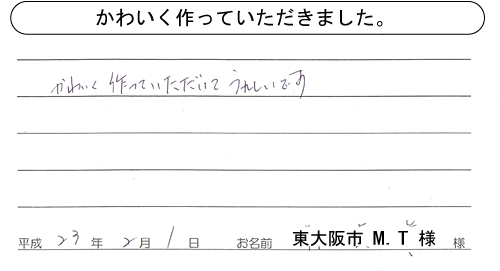 かわいく作っていただきました。
かわいく作っていただいてうれしいです
平成 23 年 2 月 1 日 お名前 東大阪市 M.T 様 様